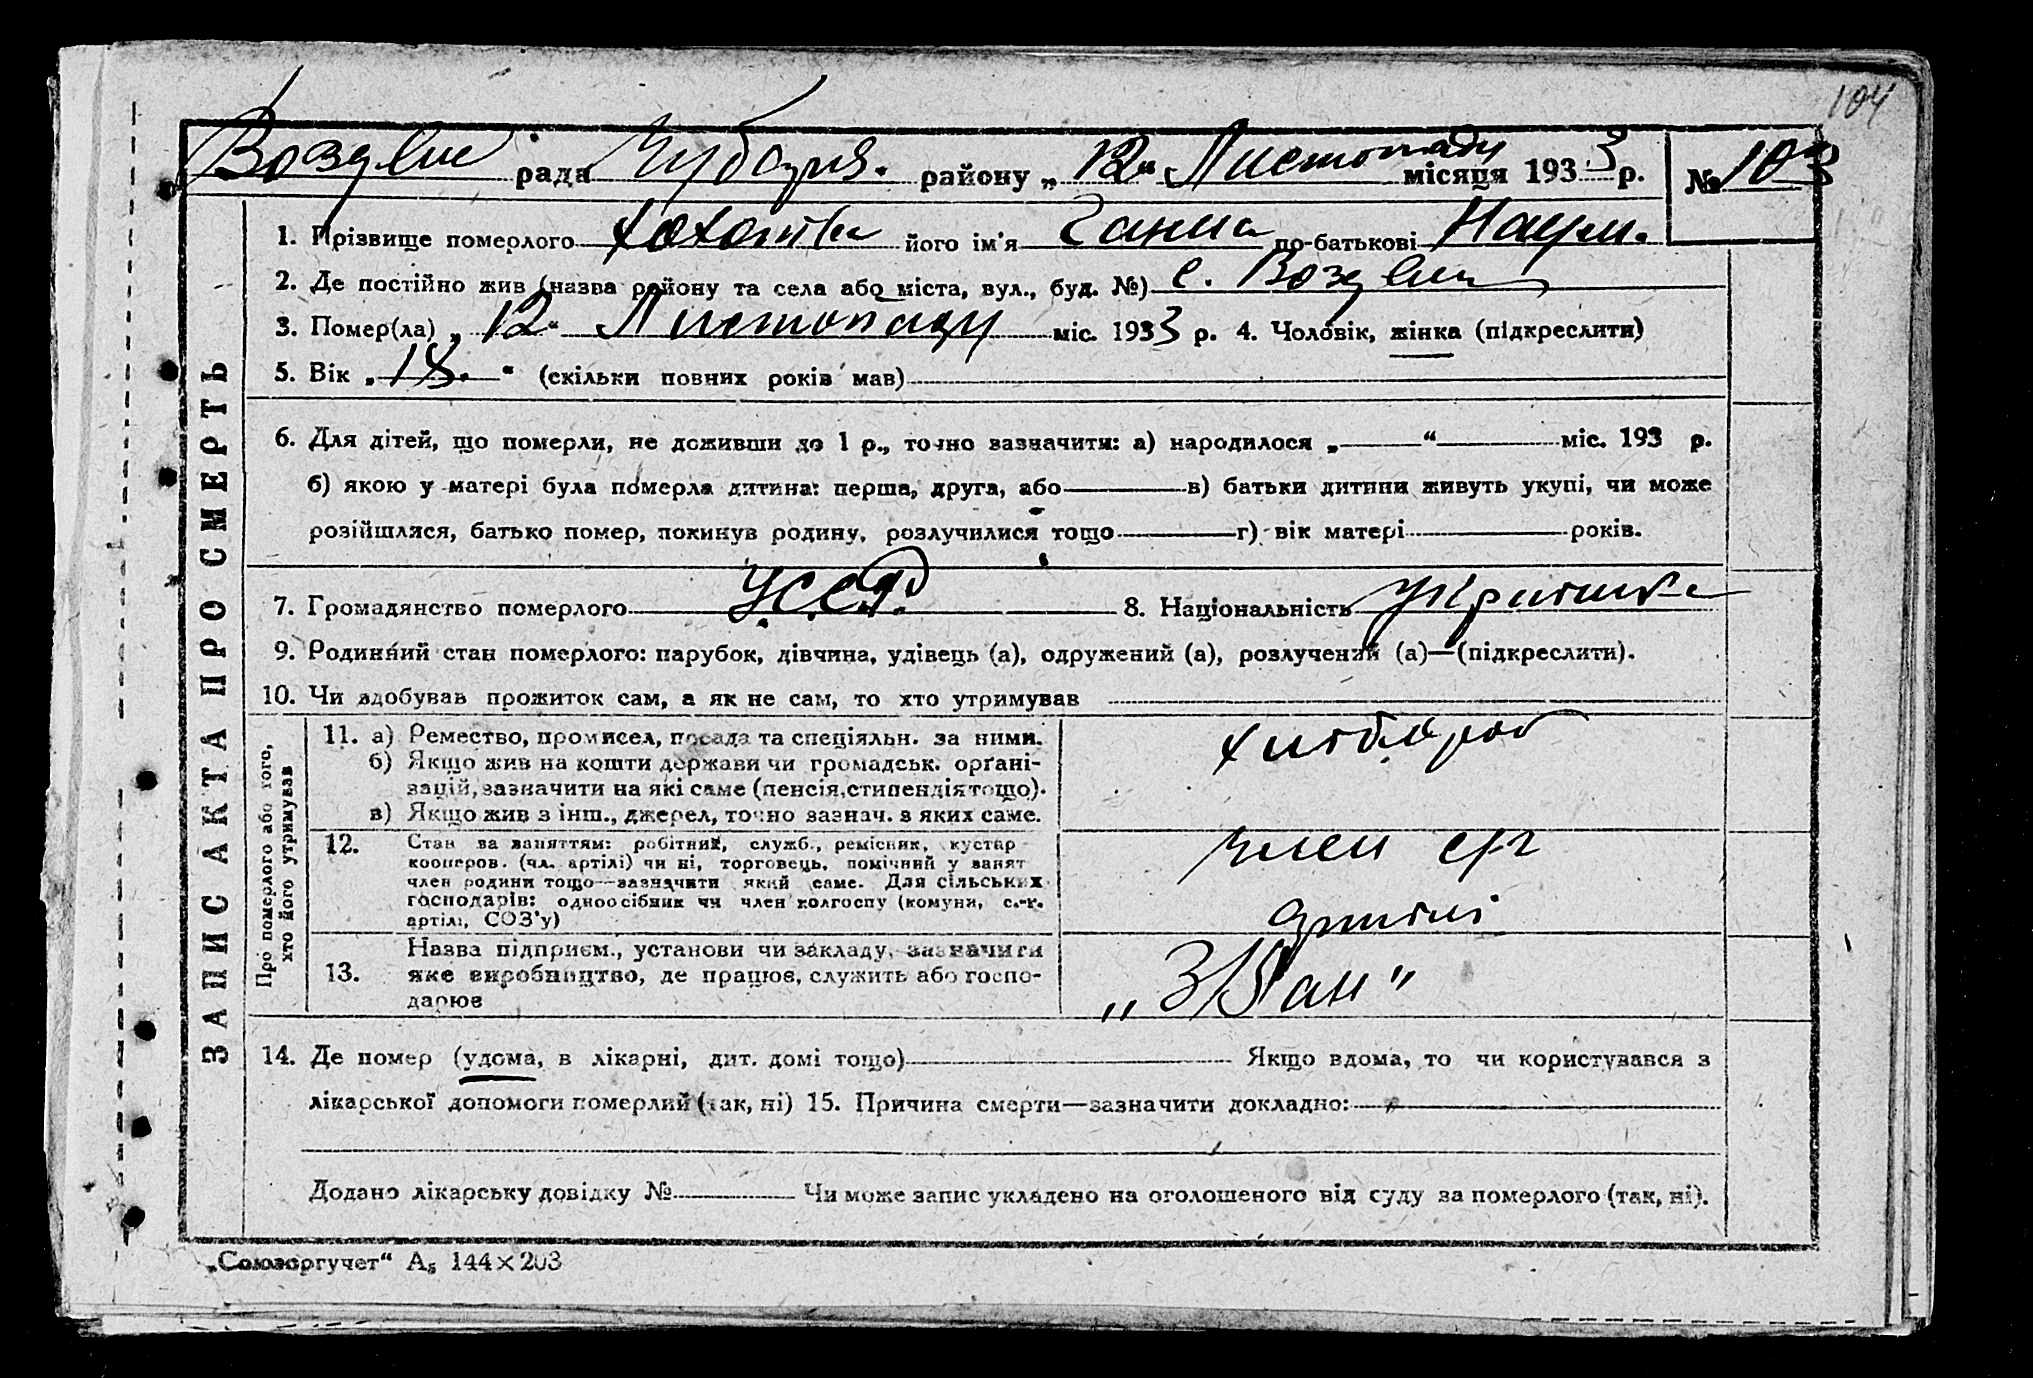 104
Воздвиж рада Чубарів. району „ 12 “ Листопаду місяця 1933 р. № 103
1. Прізвище померлого його ім'я Ганна по-батькові Наум.
2. Де постійно жив (назва району та села або міста, вул., буд. №) с.
3. Помер(ла) „ 12 “ Листопаду міс. 1933 р. 4. Чоловік, жінка (підкреслити)
5. Вік „ 18. “ (скільки повних років мав)
6. Для дітей, що померли, не доживши до 1 р., точно зазначити: а) народилося „ — “ — міс. 193 р.
б) якою у матері була померла дитина: перша, друга, або — в) батьки дитини живуть укупі, чи може
розійшлися, батько помер, покинув родину, розлучилися тощо — г) вік матері — років.
7. Громадянство померлого У.С.С.Р. 8. Національність українка
9. Родинний стан померлого: парубок, дівчина, удівець (а), одружений (а), розлучений (а)—(підкреслити).
10. Чи здобував прожиток сам, а як не сам, то хто утримував
ЗАПИС АКТА ПРО СМЕРТЬ
Про померлого або того, хто його утримував
11. а) Ремество, промисел, посада та спеціяльн. за ними.
б) Якщо жив на кошти держави чи громадськ. орґані-
зацій, зазначити на які саме (пенсія, стипендія тощо).
в) Якщо жив з інш., джерел, точно зазнач. з яких саме.
хлібороб
12. Стан за заняттям: робітник, служб., ремісник, кустар
кооперов. (чл. артілі) чи ні, торговець, помічний у занят
член родини тощо—зазначити який саме. Для сільських
господарів: одноосібник чи член колгоспу (комуни, с.-г.
артілі, СОЗ'у)
член с/г
артілі
13. Назва підприєм., установи чи закладу, зазначити
яке виробництво, де працює, служить або госпо-
дарює
14. Де помер (удома, в лікарні, дит. домі тощо) Якщо вдома, то чи користувався з
лікарської допомоги померлий (так, ні) 15. Причина смерти—зазначити докладно:
Додано лікарську довідку № Чи може запис укладено на оголошеного від суду за померлого (так, ні).
„Союзоргучет“ А₅ 144×203